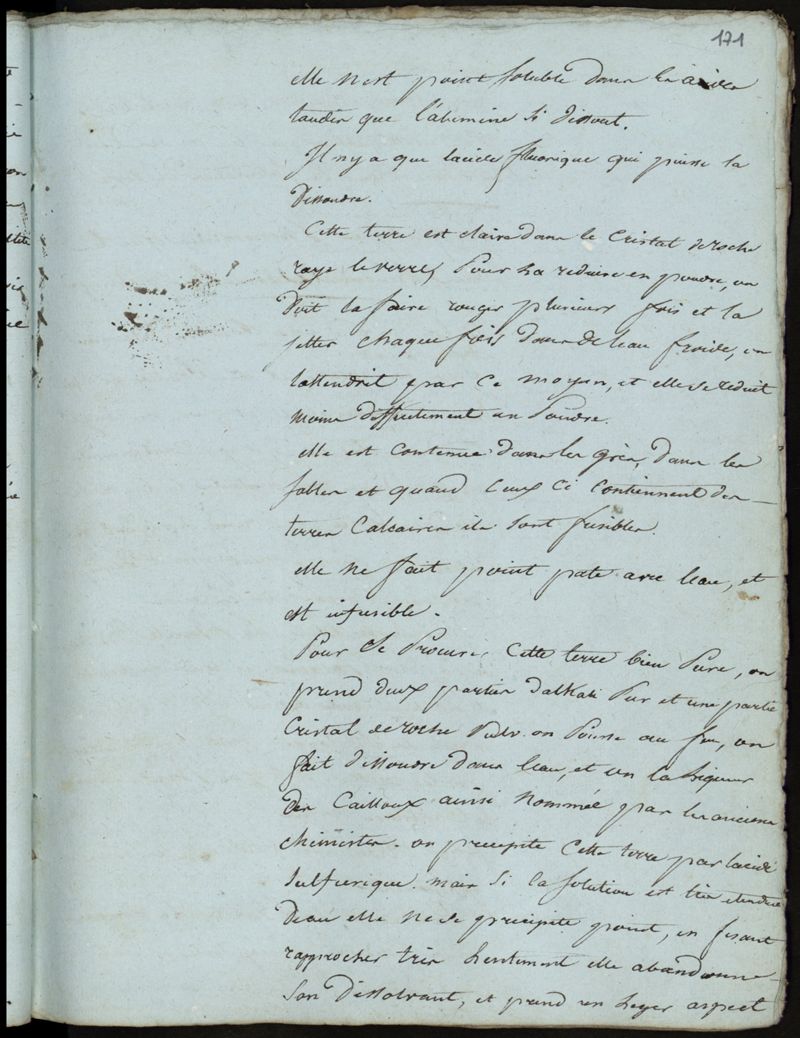 171
elle n'est point soluble dans les acides
tandis que l'alumine s'i dissout.
Il n'y a que lacide fluorique qui puisse la
Dissoudre.
Cette terre est claire dans le Cristal de roche
raye le verre, Pour la reduire en poudre, on
Doit la faire rougir plusieurs fois et la
jetter chaque fois dans de leau froide, on
lattendrit par ce moyen, et elle se reduit
moins difficilement en Poudre.
elle est contenue dans les grès, dans les
sables et quand ceux ci contiennent des
terres Calcaires ils sont fusibles.
elle ne fait point pate avec leau, et
est infusible.
Pour se Procurer Cette terre bien Pure, on
prend deux parties dalkali Pur et une partie
Cristal de roche Pulv. on Pousse au feu, on
fait dissoudre dans leau, et on la liqueur
des Cailloux ainsi nommée par les anciens
chimistes. on precipite Cette terre par lacide
Sulfurique. mais si la solution est très etendue
deau elle ne se precipite point, en fesant
rapprocher très lentement elle abandonne
son Dissolvant, et prend un leger aspect